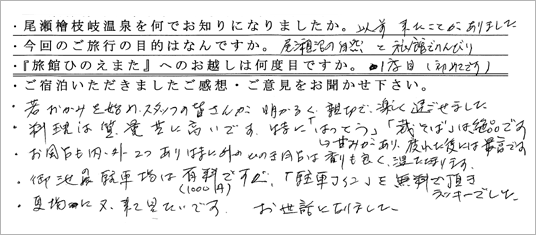 ・尾瀬檜枝岐温泉を何でお知りになりましたか。以前来たことがありました
・今回のご旅行の目的はなんですか。尾瀬沼の自然と旅館でのんびり
・『旅館ひのえまた』へのお越しは何度目ですか。1度目(初めてです)
・ご宿泊いただきましたご感想・ご意見をお聞かせ下さい。
・若おかみを始め、スタッフの皆さんが明かるく、親切で、楽しく過ごせました
・料理は質、量共に高いです。特に「はっとう」「裁そば」は絶品です
甘みがあり、疲れた後には最高です
・お風呂も内・外2つあり特に外のひのき風呂は香りも良く、温たまります。
・御池 駐車場は有料ですが、「駐車コイン」を無料で頂き
(1000円)
ラッキーでした
・夏場に又、来て見たいです。お世話になりました。